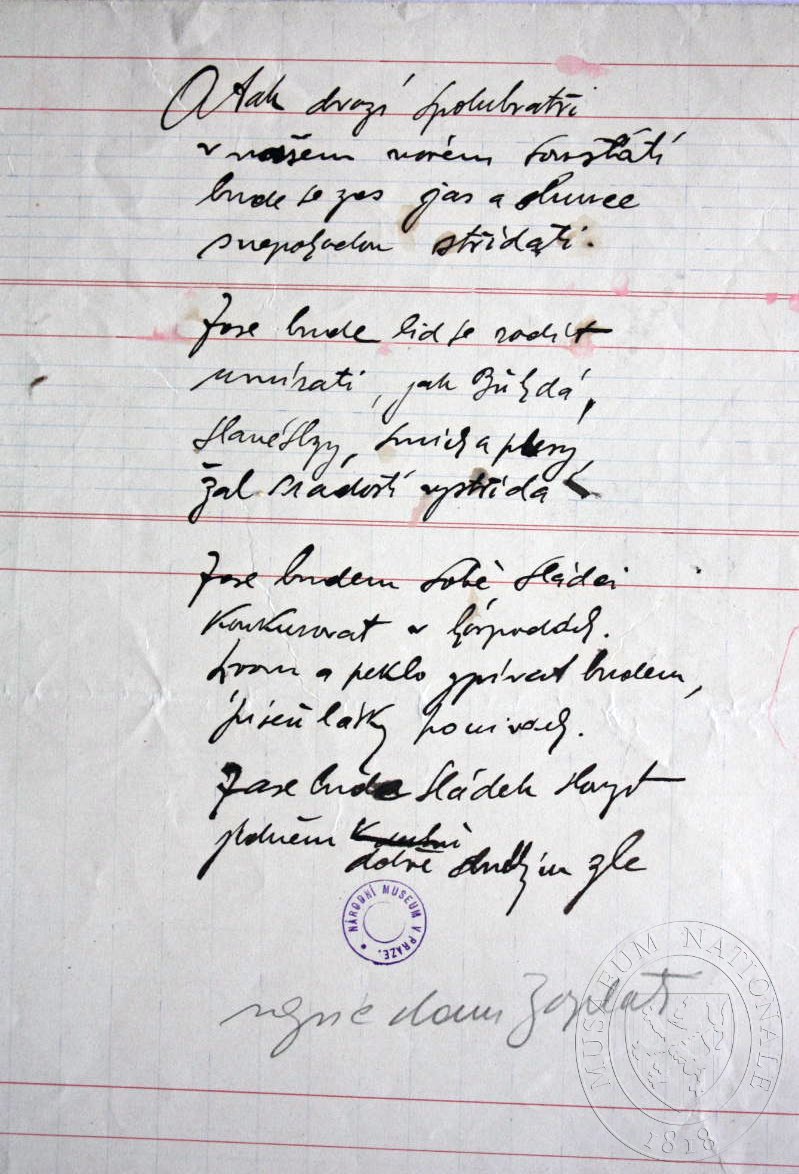 A tak drazí spolubratři
v našem novém soustátí
bude se zas jas a slunce
s nepohodou střídati.
Zase bude lid se rodit
umírati, jak Bůh dá,
slané slzy, smích a plesy,
žal s radostí vystřídá
Zase budem sobě, sládci
konkurovat v hospodách.
hrom a peklo zpívat budem,
píseň lásky
Zase bude sládek slout
jedněm
dobře druhým zle
NÁRODNÍ MUSEUM V PRAZE.
zaplat
MUSEUM NATIONALE
1818